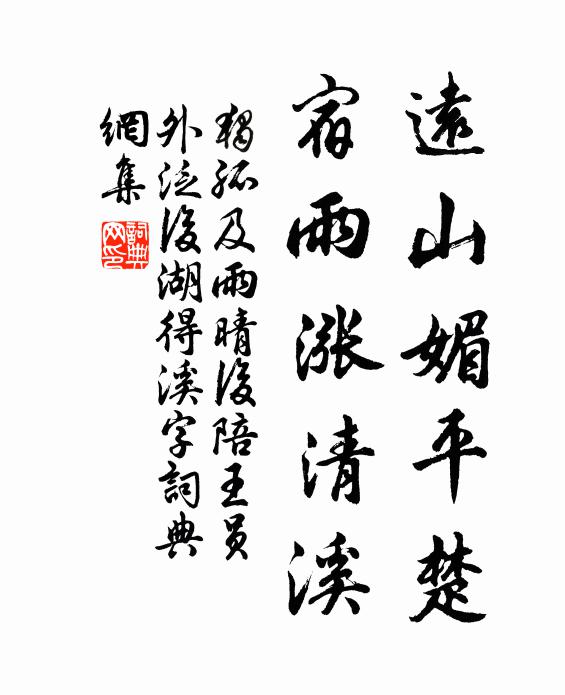 遠山媚平楚
宿雨漲清溪
獨孤及雨晴後陪王員
外泛後湖得溪字詞典
網集
詞典網印